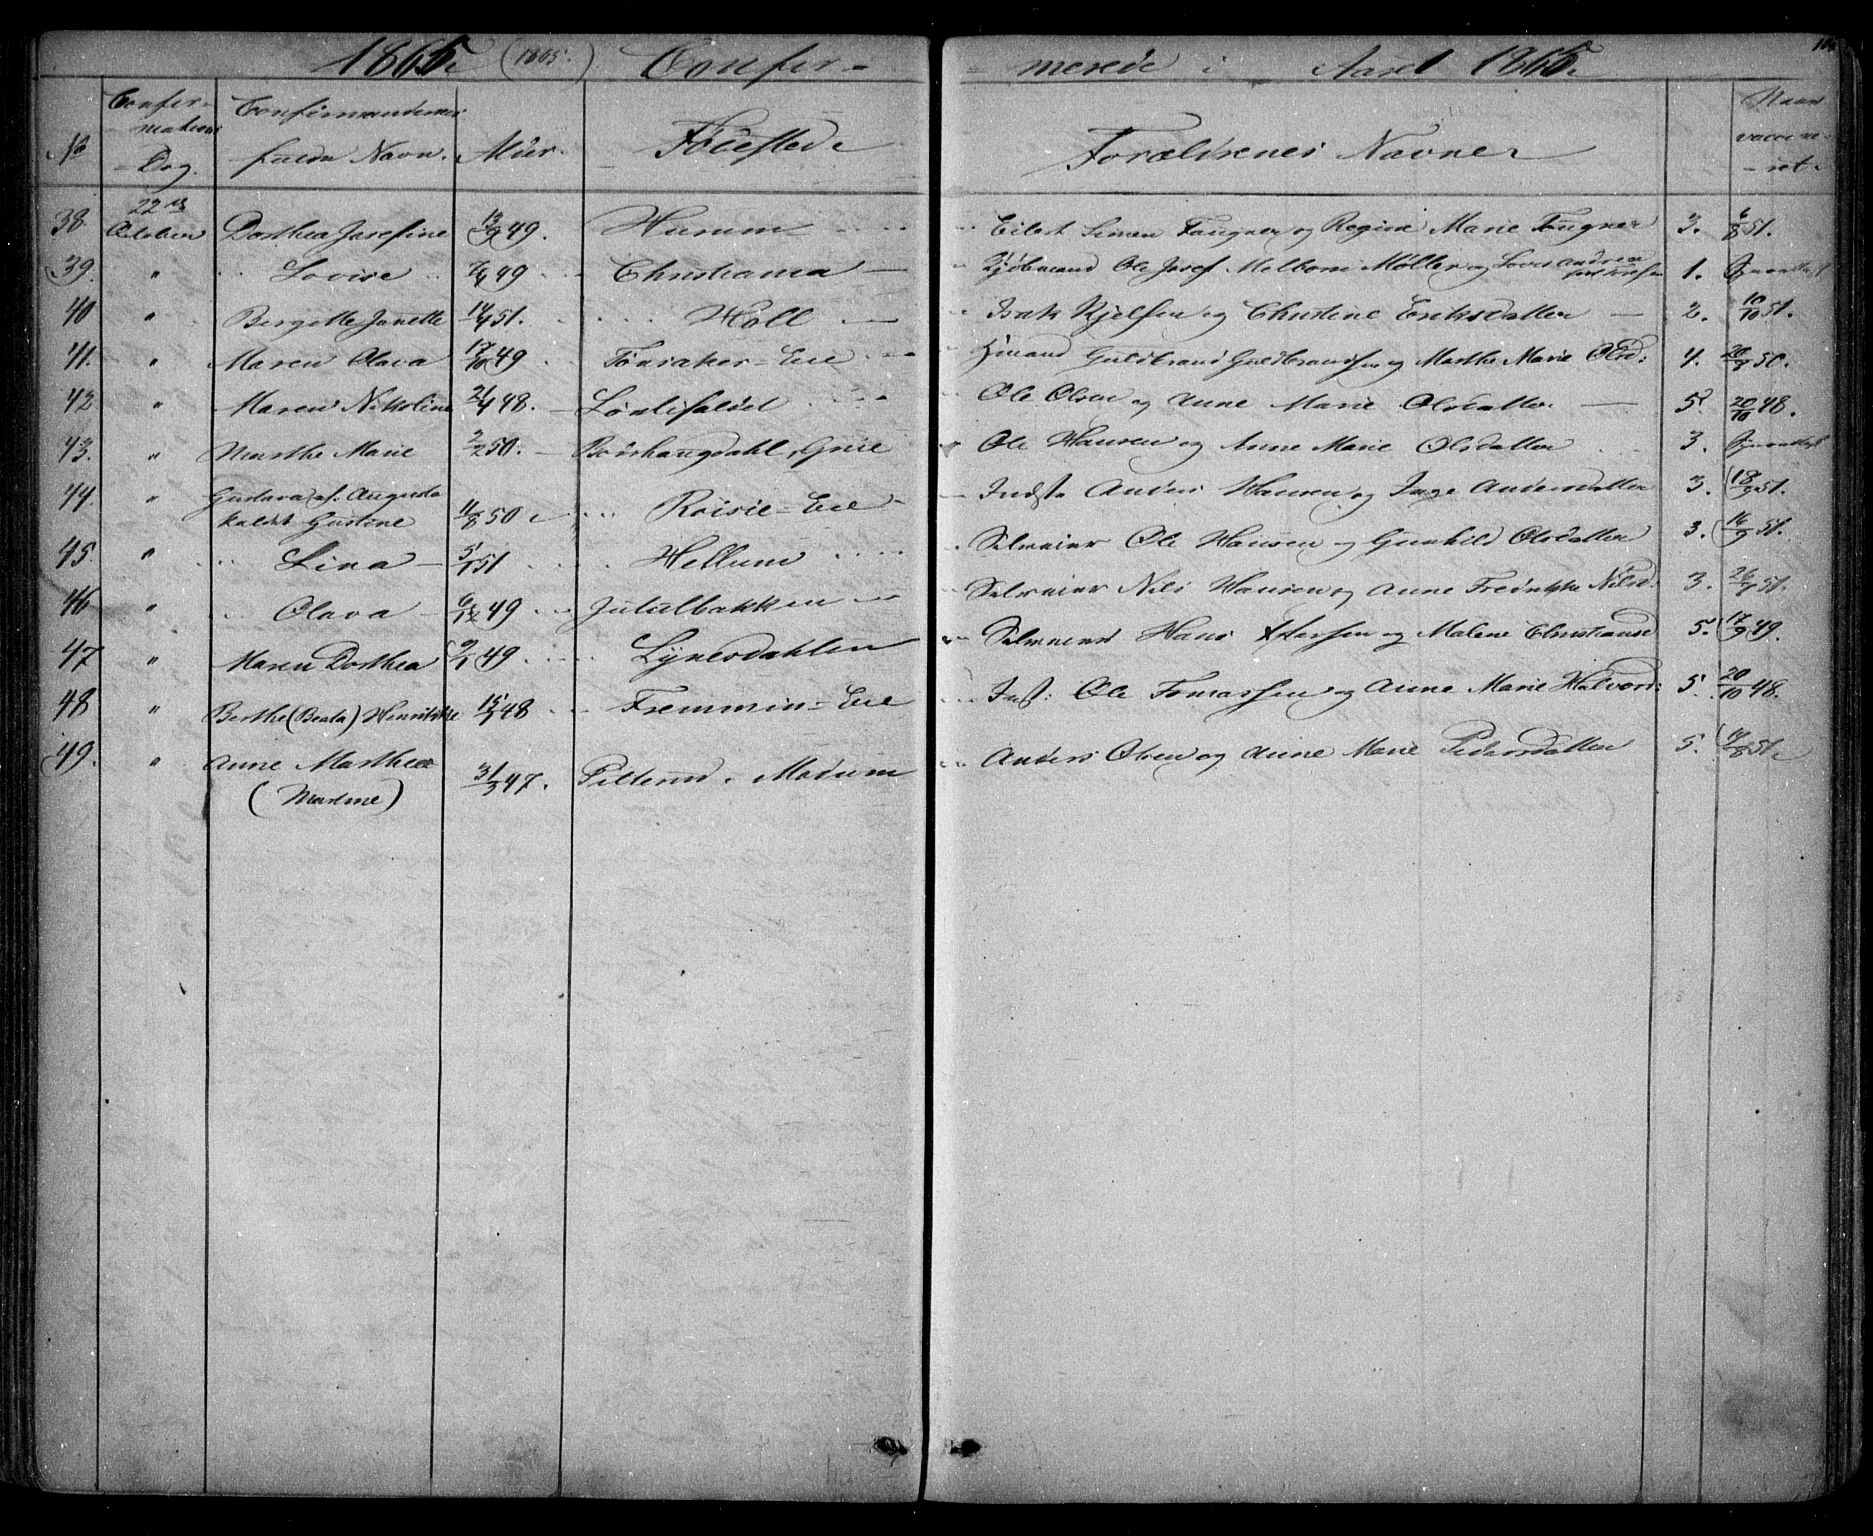 1865. (1865.) Confir-
merede i Aaret 1865.
No
Confir-
mations
-Dag.
Confirmandernes
fulde Navn.
Alder.
Fødested.
Forældrenes Navne.
Naar
vaccine-
-ret.
38. 22de October Dorthea Josefine 13/9 49. Hurum Eilert Simen Fougner og Regine Marie Fougner 3. 6/8 51.
39. " Lovise 49 Christiania Kjøbmand Ole Josef Melbom Møller og Lovise Andrea 1.
40 " Bergitte Janette 51. Holl Isak Kjelsen og Christine Eriksdatter 2. 10/10 51.
41. " Maren Olava 17/10 49 Eie Guldbrand Guldbrandsen og Marthe Marie Olsd: 4. 50.
42 " Maren Nikoline 48. Ole Olsen og Anne Marie Olsdatter 5. 20/10 48.
43. " Marthe Marie 2/2 50. Ole Hansen og Anne Marie Olsdatter 3.
44. " Gustava el. Augusta
kaldt Gustine 11/8 50. Eie Indst. Anders Hansen og Inge Andersdatter 3. 18/9 51.
45. " Lina 5/1 51 Hellum Selveier Ole Hansen og Gunhild Olsdatter 3. 16/9 51.
46 " Olava 6/12 49 Selveier Nils Hansen og Anne Fredrikke Nilsd: 3. 51.
47 " Maren Dorthea 9/1 49 Lynesdahlen Selveiend Hans og Malene Christianse 5. 17/9 49.
48 " Berthe (Beata) Henrikke 48 Fremmin-Eie Inst: Ole Tomassen og Anne Marie Halvord: 5. 20/10 48.
49. " Anne Marthea
(Martine) 31/3 47. Modum Anders Olsen og Anne Marie Pedersdatter 5. 51.